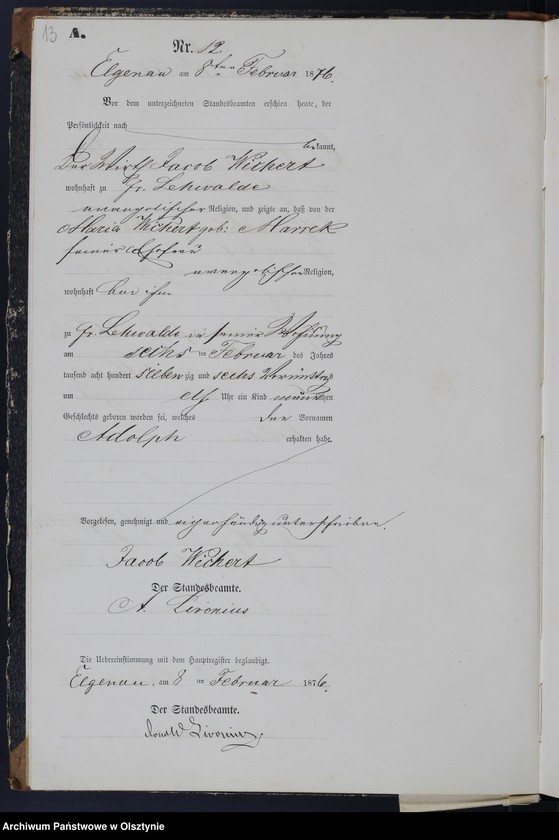 13
A.
Nr. 12.
Elgenau am 8ten Februar 1876.
Vor dem unterzeichneten Standesbeamten erschien heute, der
Persönlichkeit nach
bekannt,
Der Wirth Jacob Wichert
wohnhaft zu Gr. Lehwalde
evangelischer Religion, und zeigte an, daß von der
Maria Wichert geb: Marrek
seiner Ehefrau
evangelischer Religion,
wohnhaft bei ihm
zu Gr. Lehwalde in seiner Wohnung
am sechs ten Februar des Jahres
tausend acht hundert sieben zig und sechs Vormittags
um elf Uhr ein Kind männlichen
Geschlechts geboren worden sei, welches den Vornamen
Adolph erhalten habe.
Vorgelesen, genehmigt und eigenhändig unterschrieben.
Jacob Wichert
Der Standesbeamte.
A. Livonius
Die Uebereinstimmung mit dem Hauptregister beglaubigt.
Elgenau, am 8 ten Februar 1876.
Der Standesbeamte.
Livonius
Archiwum Państwowe w Olsztynie